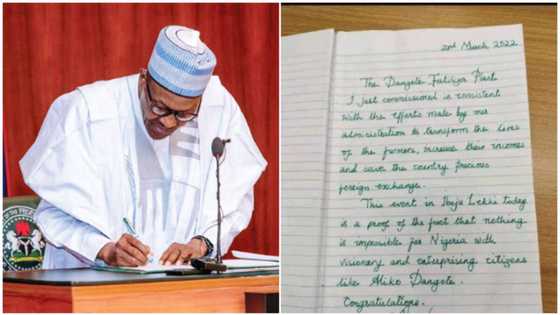 2nd March 2022
The Dangote Fertilizer Plant
I just commissioned is consistent
with the efforts made by our
administration to transform the lives
of the farmers, increase their incomes
and save the country precious
foreign exchange.
This event in Ibeju Lekki today
is a proof of the fact that nothing
is impossible for Nigeria with
visionary and enterprising citizens
like Aliko Dangote.
Congratulations.